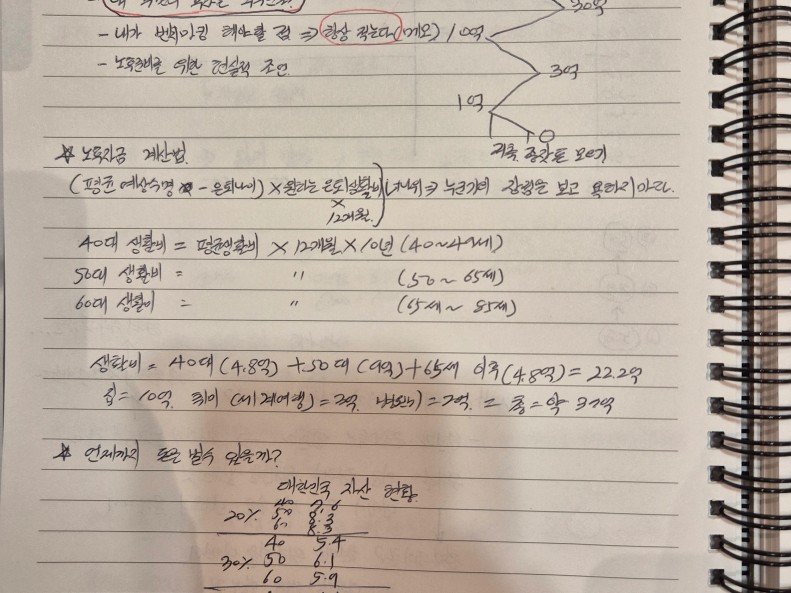 - 내가 벤치마킹 해야할 점 ⇒ 항상 적는다 (메모)
- 노후준비를 위한 현실적 조언.
30억
100억
3억
1억
저축 종잣돈 모으기
☆ 노후자금 계산법.
(평균 예상수명 - 은퇴나이) × 원하는 은퇴생활비 × 12개월.) 누군가의 감량을 보고 욕하지마라.
40대 생활비 = 평균생활비 × 12개월 × 10년 (40~49세)
50대 생활비 = 〃 (50 ~ 65세)
60대 생활비 = 〃 (65세~ 85세)
생활비 = 40대 (4.8억) + 50대 (9억) + 65세 이후 (4.8억) = 22.2억
집 = 10억. 취미 (세계여행) = 2억. = 총 = 약 37억
☆ 언제까지 돈을 벌수 있을까?
대한민국 자산 현황.
20%
50 8.3
40 5.4
30% 50 6.1
60 5.9